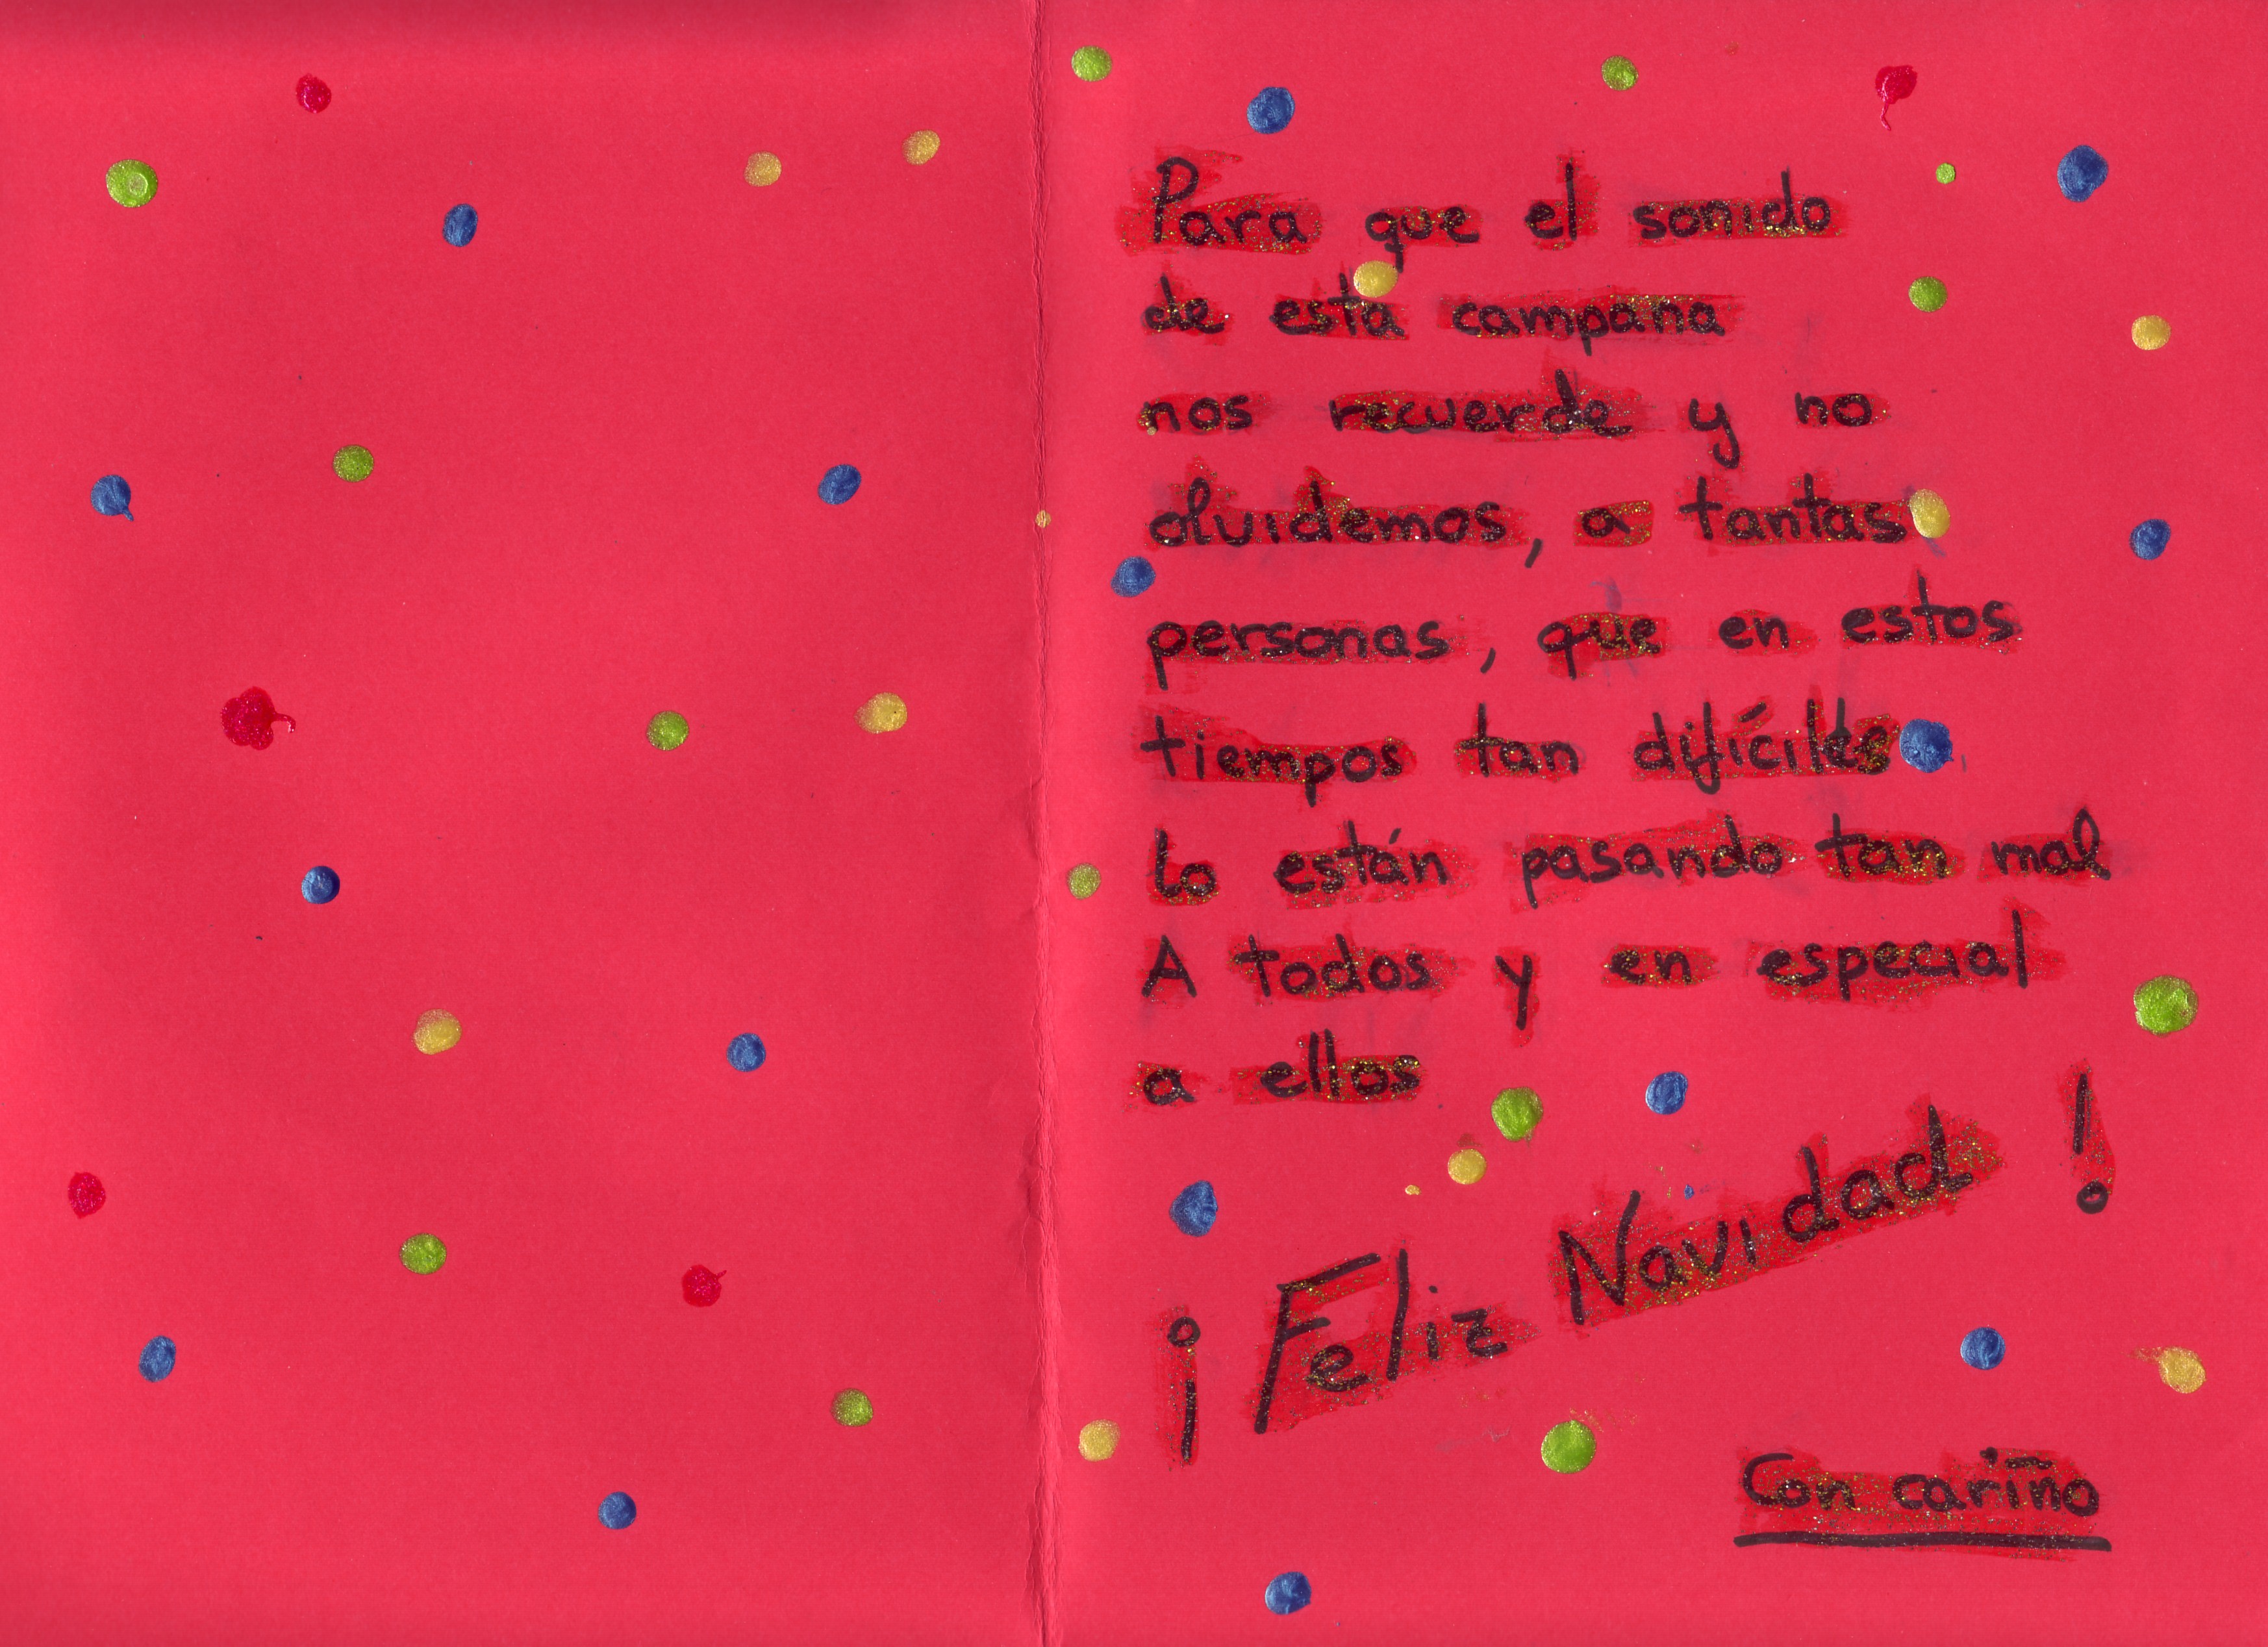 Para que el sonido
de esta campana
nos recuerde y no
olvidemos, a tantas
personas, que en estos
tiempos tan difíciles,
lo están pasando tan mal
A todos y en especial
a ellos
¡Feliz Navidad!
Con cariño